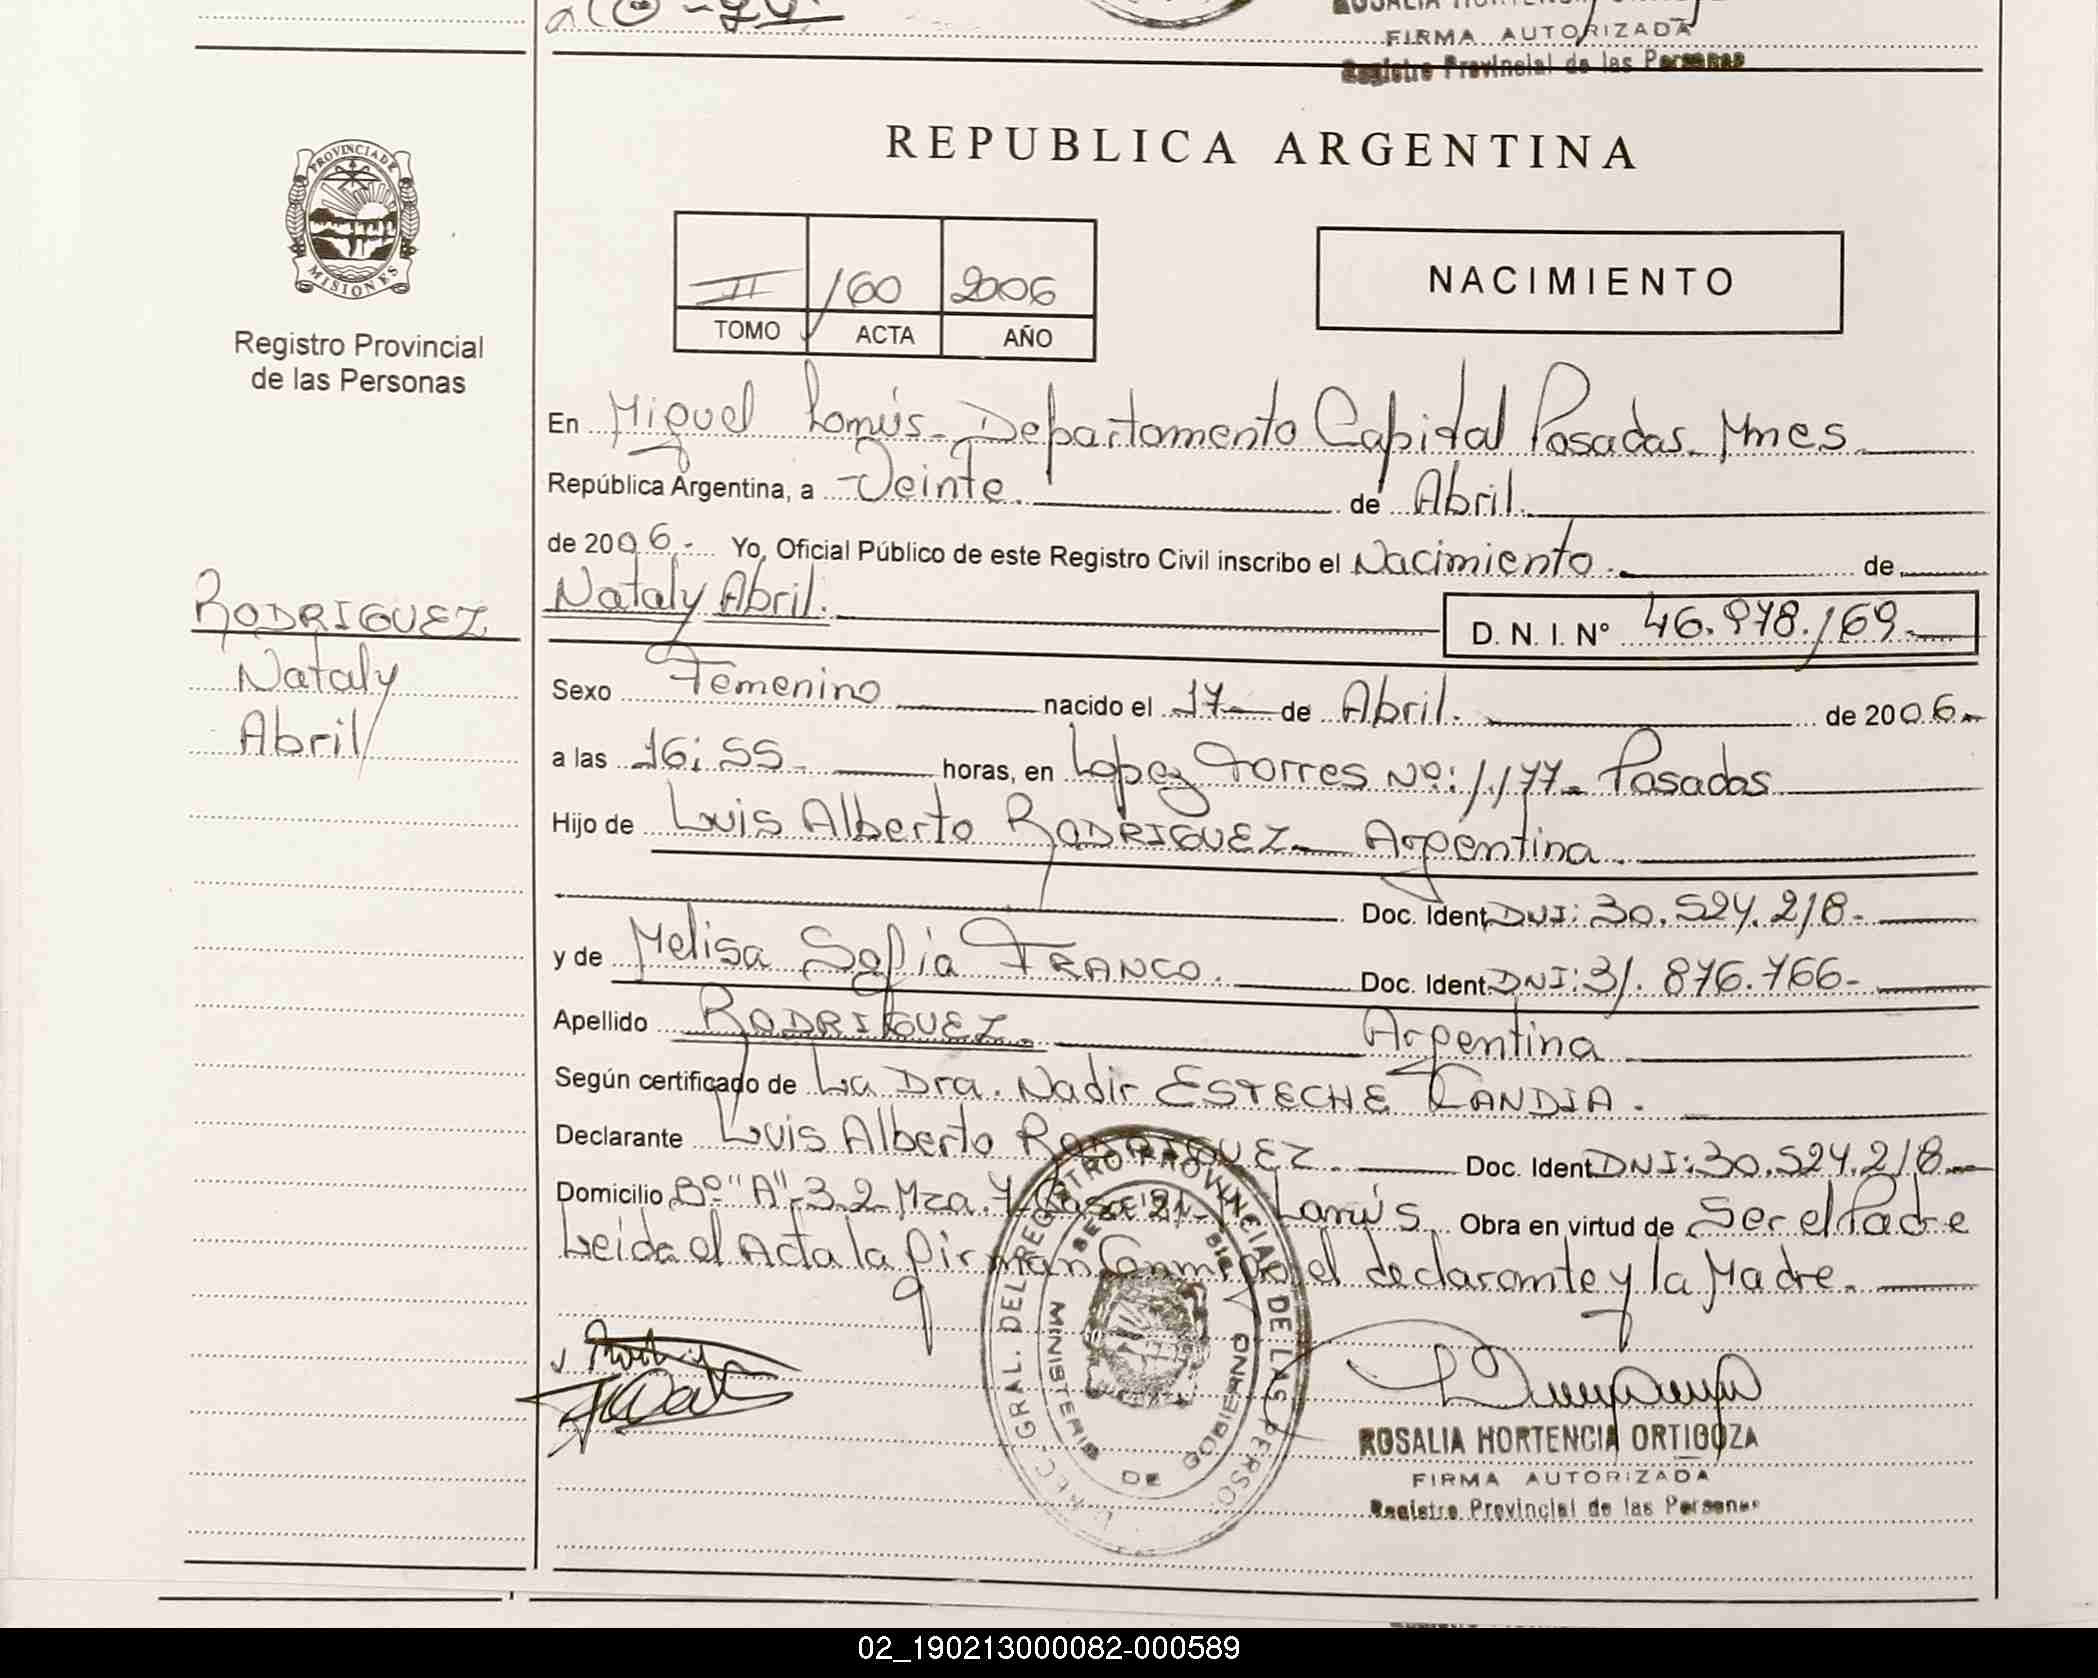 FIRMA AUTORIZADA
Registro Provincial de las Personas
PROVINCIA DE
MISIONES
Registro Provincial
de las Personas
RODRIGUEZ
Nataly
Abril
REPUBLICA ARGENTINA
II 160 2006
TOMO ACTA AÑO
NACIMIENTO
En Miguel Lanús - Departamento Capital Posadas - Mnes
República Argentina, a Veinte. de Abril.
de 2006.- Yo, Oficial Público de este Registro Civil inscribo el Nacimiento. de
Nataly Abril. D. N. I. N° 46.978.169.-
Sexo Femenino nacido el 17- de Abril. de 2006.-
a las 16:55.- horas, en Lopez Torres Nº: 1.177.- Posadas
Hijo de Luis Alberto RODRIGUEZ - Argentina.
Doc. Ident. DNI: 30.524.218.-
y de Melisa Sofia FRANCO. Doc. Ident. DNI: 31.876.766-
Apellido RODRIGUEZ. Argentina
Según certificado de La Dra. Nadir ESTECHE CANDIA.
Declarante Luis Alberto RODRIGUEZ. Doc. Ident. DNI: 30.524.218.-
Domicilio Bº "A"-3.2- Mza. Y Casa 21- M. Lanús. Obra en virtud de Ser el Padre
Leida el Acta la firman Conmigo el declarante y la Madre.-
DIREC. GRAL. DEL REGISTRO PROVINCIAL DE LAS PERSO.
MINISTERIO DE GOBIERNO
ROSALIA HORTENCIA ORTIGOZA
FIRMA AUTORIZADA
Registro Provincial de las Personas
02_190213000082-000589